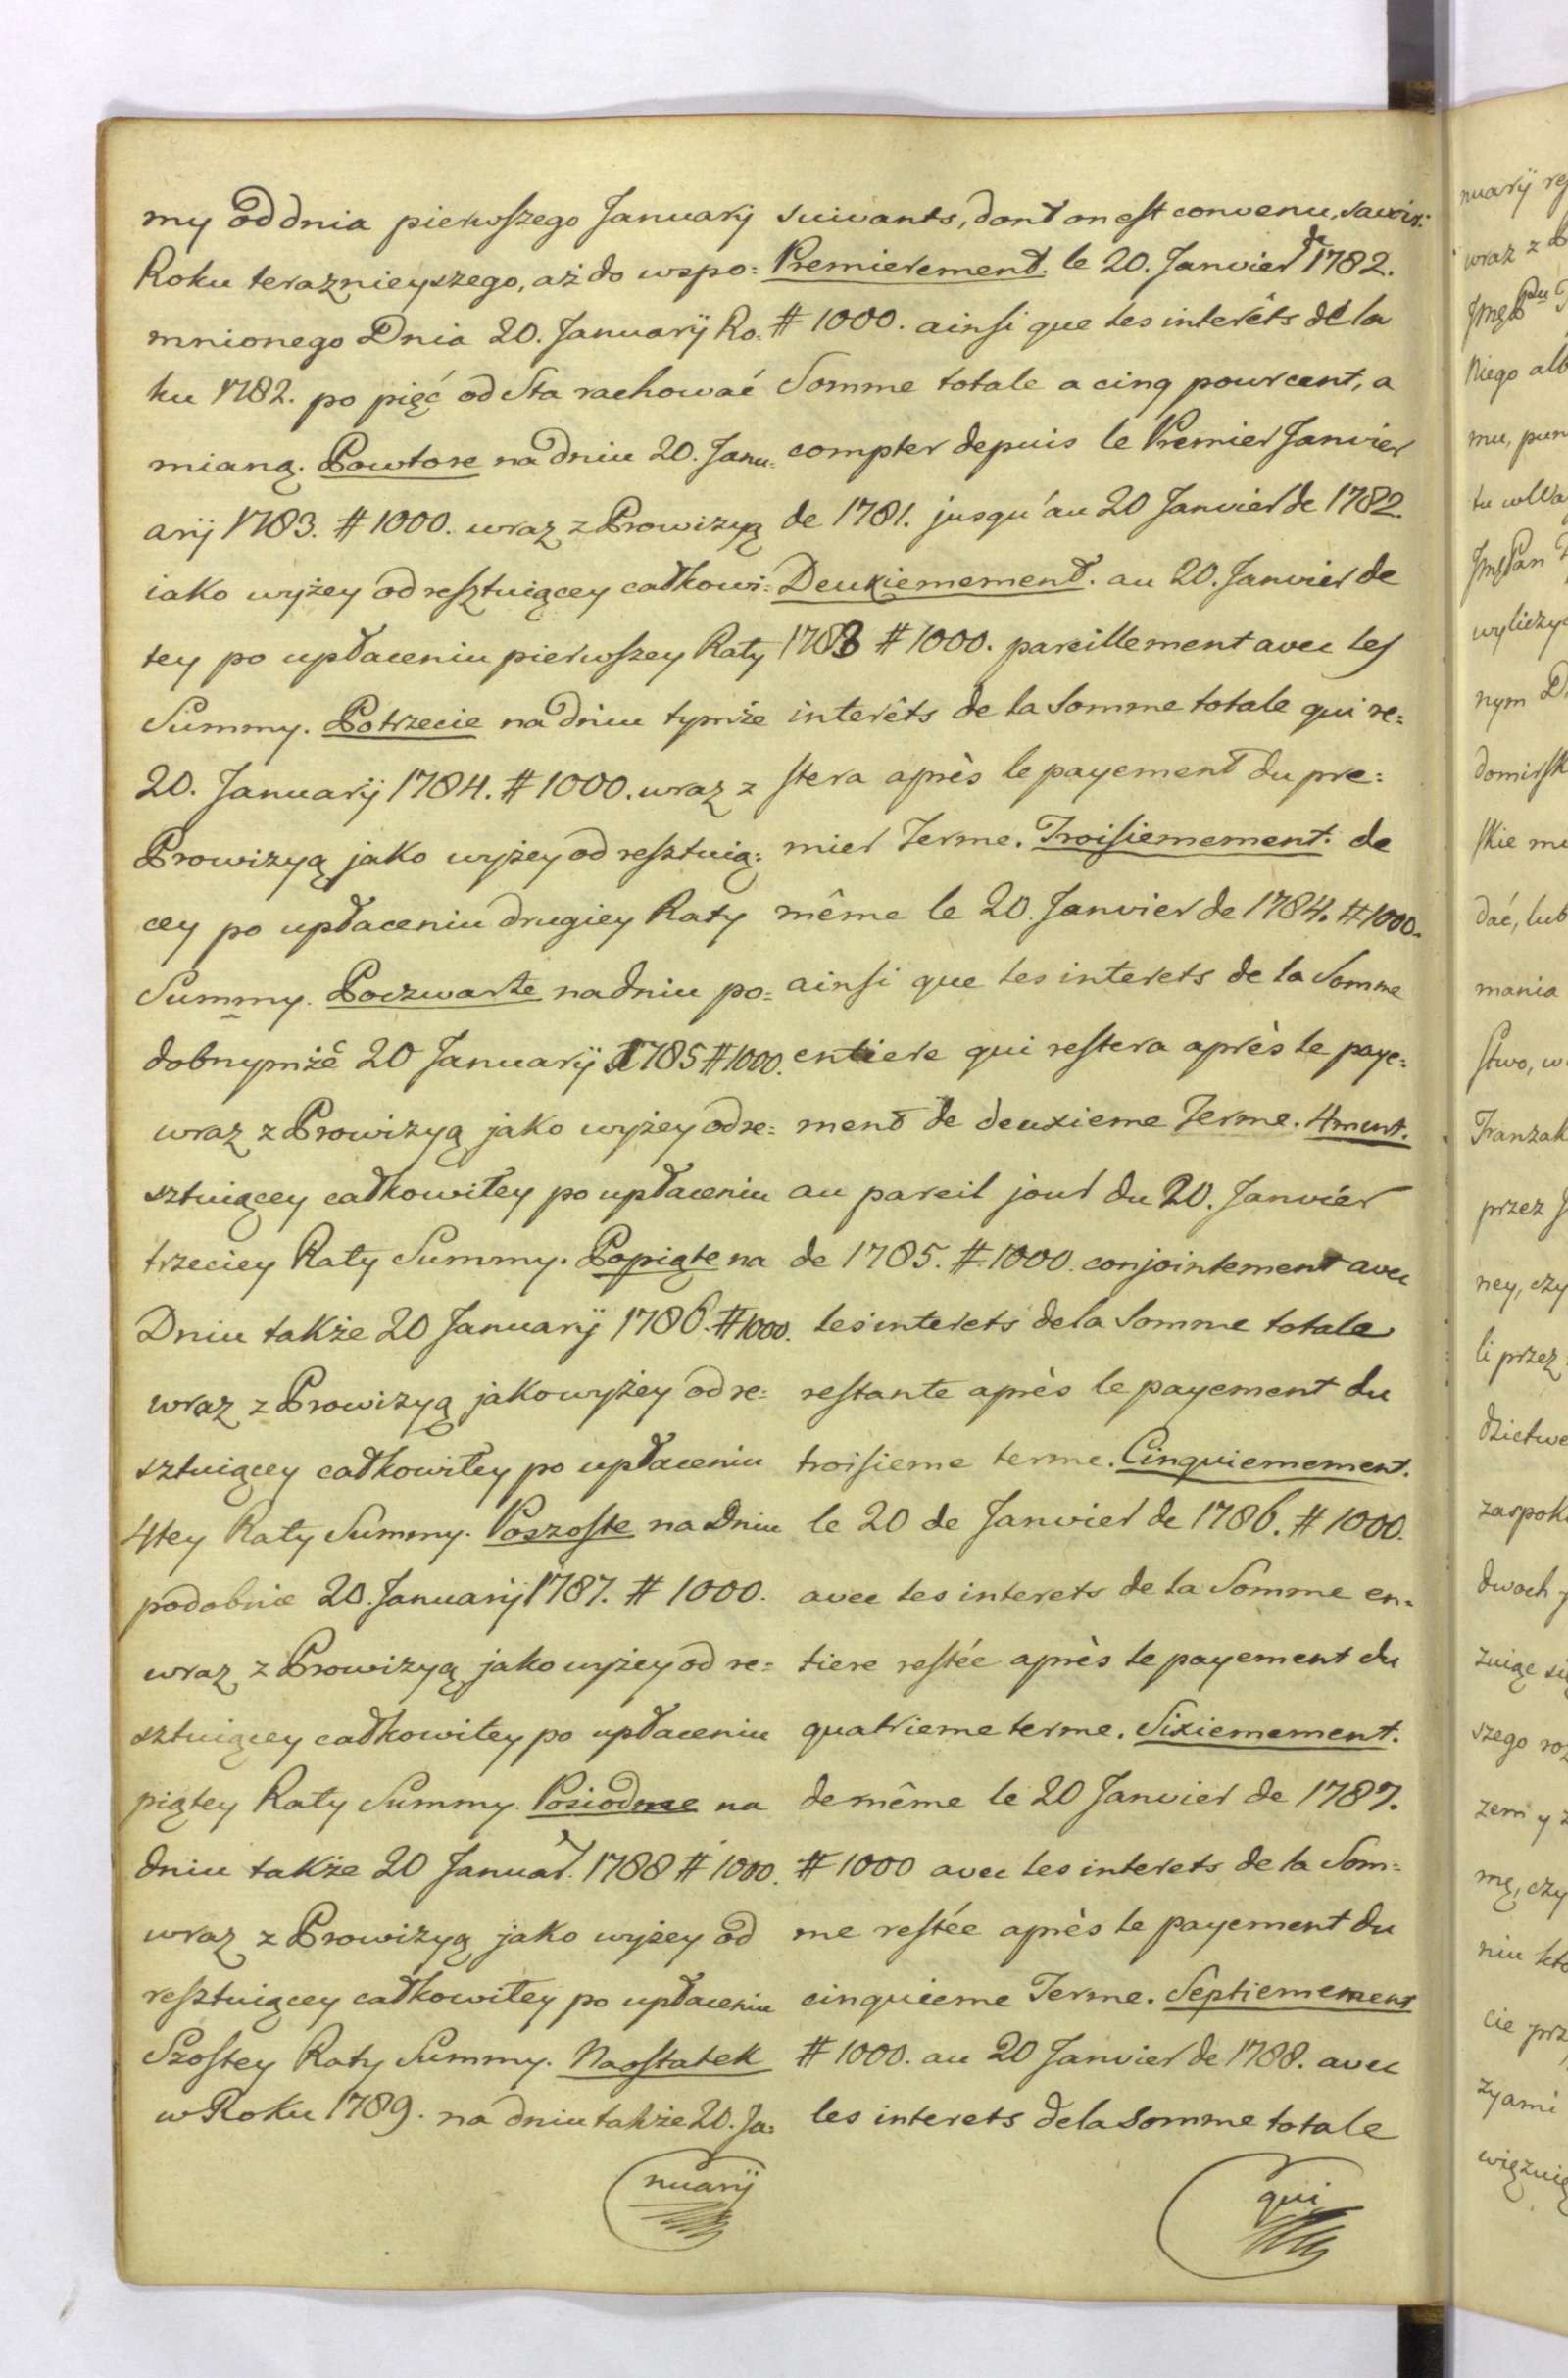 my od dnia pierwszego Januarij
Roku teraznieyszego, aż do wspo=
mnionego Dnia 20. Januarij Ro=
ku 1782. po pięć od Sta rachować
mianą. Powtore na dniu 20. Janu=
arij 1783. # 1000. wraz z Prowizyą
iako wyżey od resztuiącey całkowi=
tey po upłaceniu pierwszey Raty
Summy. Potrzecie na dniu tymże
20. Januarij 1784. # 1000. wraz z
Prowizyą jako wyżey od resztuią=
cey po upłaceniu drugiey Raty
Summy. Poczwarte na dniu po=
dobnymże 20 Januarij 1785 # 1000.
wraz z Prowizyą jako wyżey od re=
sztuiącey całkowitey po upłaceniu
trzeciey Raty Summy. Popiąte na
Dniu także 20 Januarij 1786. # 1000.
wraz z Prowizyą jako wyżey od re=
sztuiącey całkowitey po upłaceniu
4tey Raty Summy. Poszoste na Dniu
podobnie 20. Januarij 1787. # 1000.
wraz z Prowizyą jako wyżey od re=
sztuiącey całkowitey po upłaceniu
piątey Raty Summy. Posiodme na
dniu także 20 Januar. 1788 # 1000.
wraz z Prowizyą jako wyżey od
resztuiącey całkowitey po upłaceniu
Szostey Raty Summy. Naostatek
w Roku 1789. na dniu także 20. Ja=
nuarij
suivants, dont on est convenu, savoir:
Premierement. le 20. Janvier de 1782.
# 1000. ainsi que les interêts de la
Somme totale a cinq pour cent, a
compter depuis le Premier Janvier
de 1781. jusqu'au 20 Janvier de 1782.
Deuxiemement. au 20. Janvier de
1783 # 1000. pareillement avec les
interêts de la Somme totale qui re=
stera après le payement du pre=
mier Terme. Troisiemement. de
même le 20. Janvier de 1784. # 1000.
ainsi que les interets de la Somme
entiere qui restera après le paye=
ment de deuxieme Terme. 4ment.
au pareil jour du 20. Janvier
de 1785. # 1000. conjointement avec
les interets de la Somme totale
restante après le payement du
troisieme terme. Cinquiemement.
le 20 de Janvier de 1786. # 1000.
avec les interets de la Somme en=
tiere restée après le payement du
quatrieme terme. Sixiemement.
de même le 20 Janvier de 1787.
# 1000 avec les interets de la Som=
me restée après le payement du
cinquieme Terme. Septiemement
# 1000. au 20 Janvier de 1788. avec
les interets de la Somme totale
qui
nuarij
wraz z
Niego alb
mu, pun
JmęPan
nym
dać, lub
mania
przez
ney, czy
li przez
dwoch
szego
zem y
mę, czy
niu
zyami